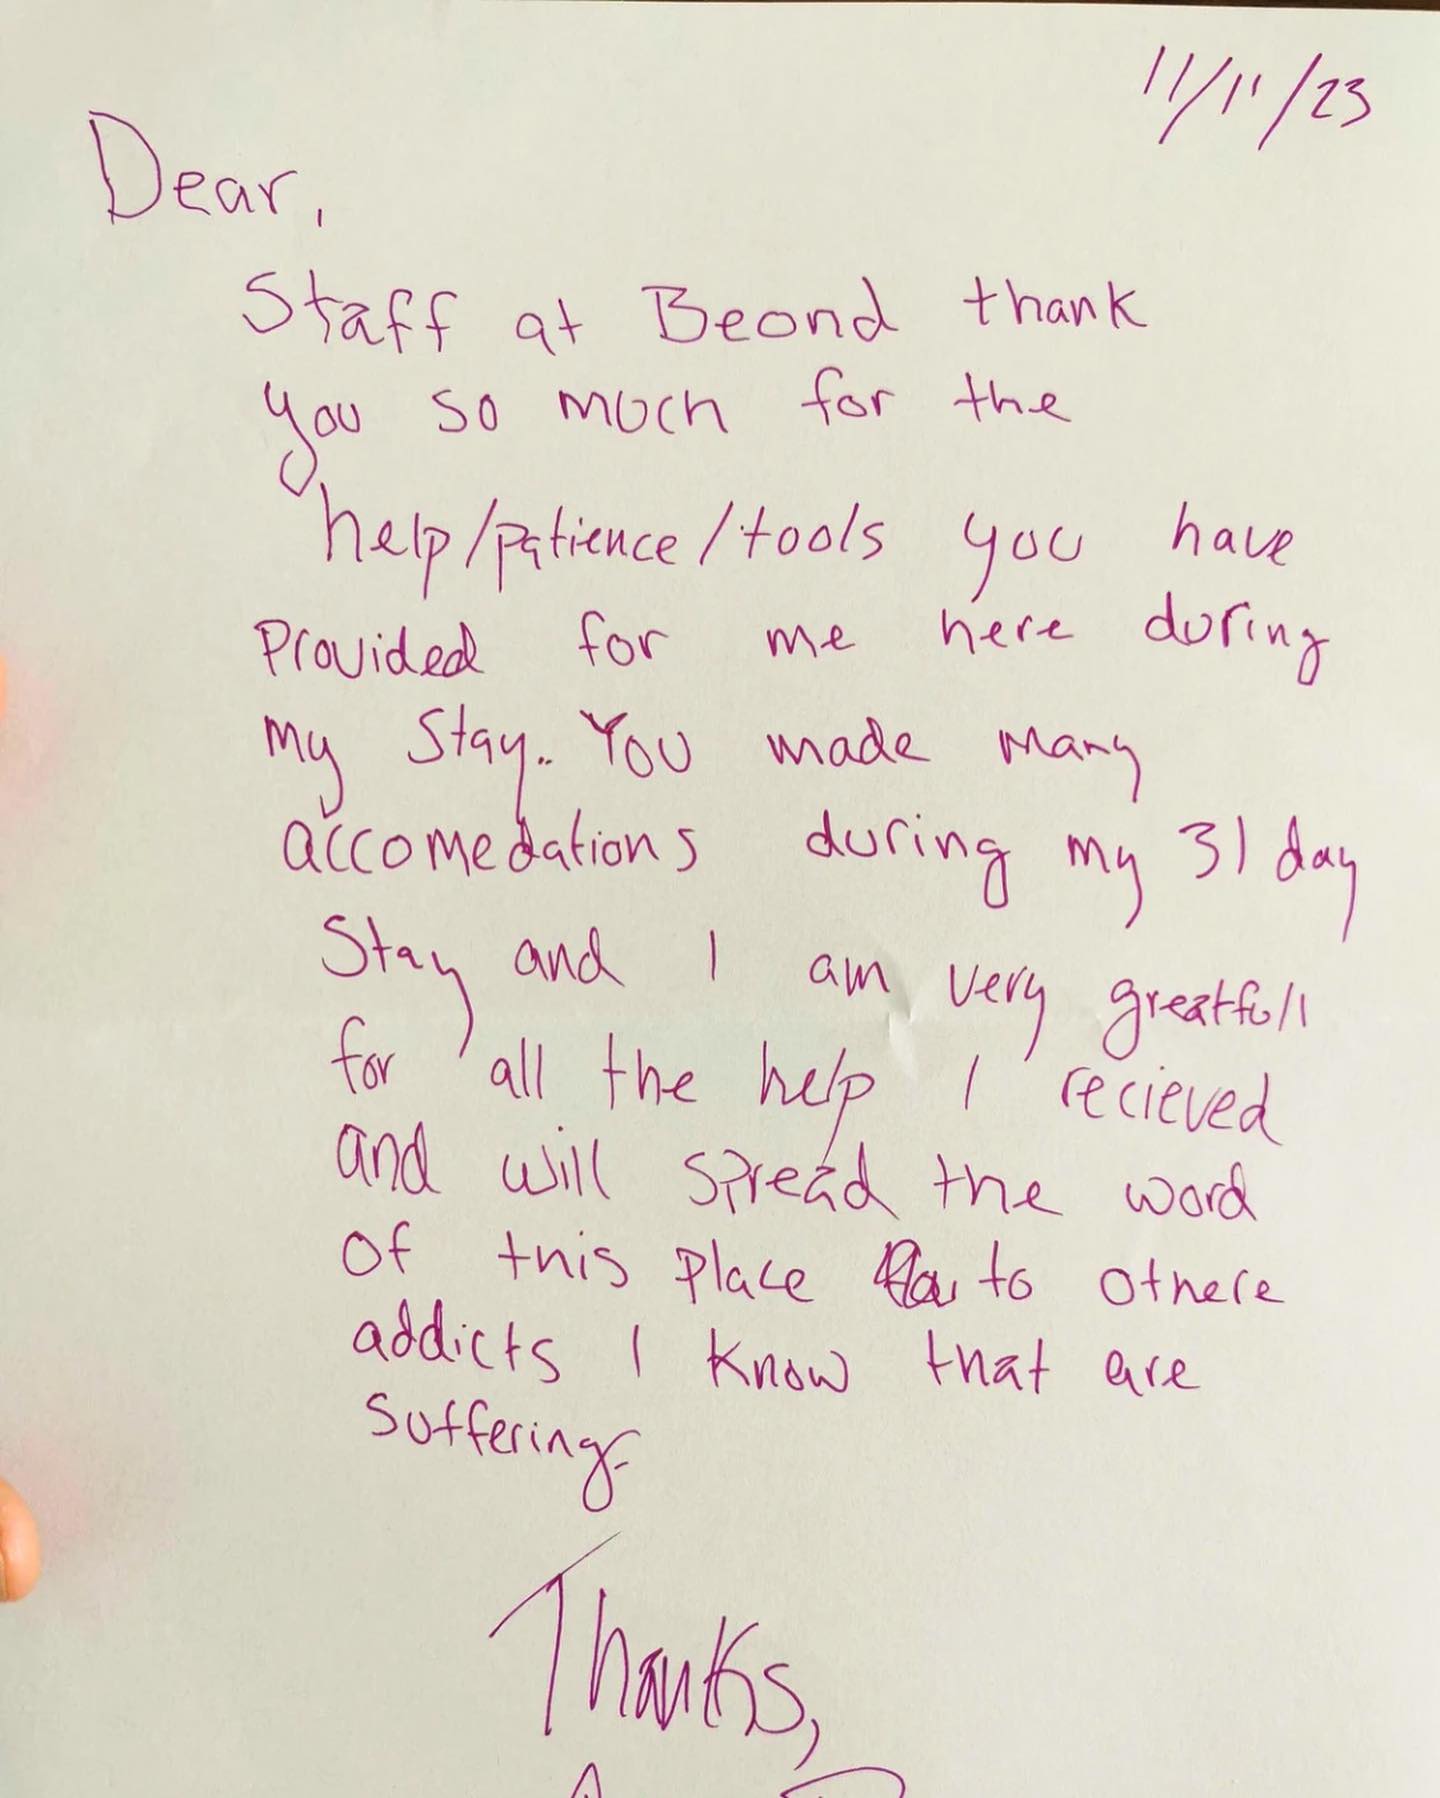 11/11/23
Dear,
Staff at Beond thank
you so much for the
help/patience/tools you have
Provided for me here during
my Stay.. You made many
accomedations during my 31 day
Stay and I am very greatfull
for all the help I recieved
and will spread the word
of this place to othere
addicts I know that are
suffering.
Thanks,